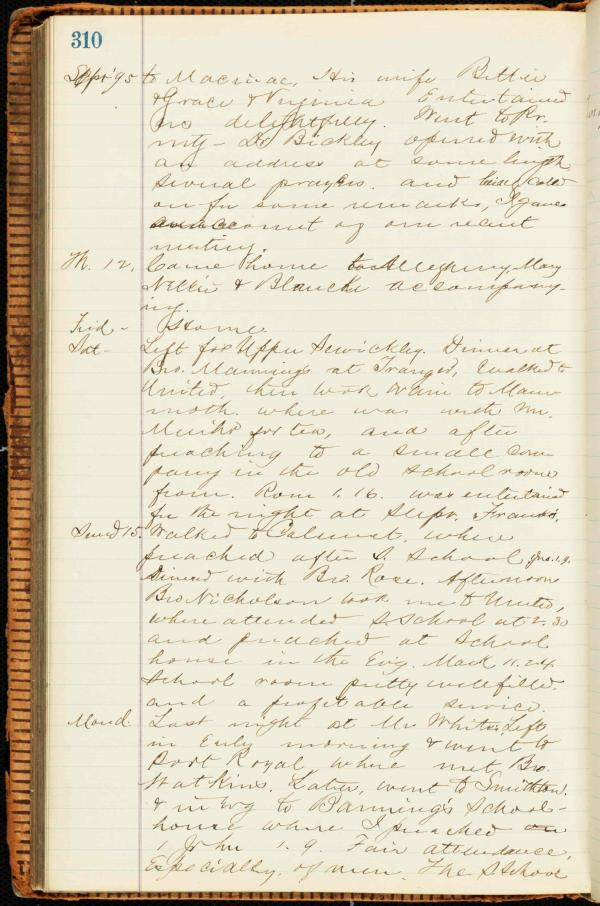 310
Sept '95 to Mackinac, His wife Bettie
& Grace & Virginia Entertained
us delightfully. Went to
Dr Bickley opened with
an address at some length,
several prayers. and called
on for some remarks, I gave
account of our recent
meeting.
Th. 12. Came home to Allegheny, Mary
Nellie & Blanche accompany-
ing.
Frid - Home
Sat - Left for Upper Sewickley. Dinner at
Bro. Mannings at Tranger, walked to
United, then took train to Mam-
moth. where was with Mr.
for tea, and after
preaching to a small com-
pany in the old school room
from. Rom 1.16. was entertained
for the night at Supt.
Sund 15. Walked to Calumet, where
preached after S. School Jno. 1.9.
Dined with Bro. Rose. Afternoon
Bro Nicholson took me to United,
where attended S School at 2.30
and preached at School
house in the Evg. Mark 11.24
School room pretty well filled.
and a profitable service.
Mond. Last night at Mr White. Left
in Early morning & went to
Port Royal, where met Bro.
Watkins. Later, went to Smithton.
& in Evg to Banning's School-
house where I preached on
1 John 1.9. Fair attendance,
Especially of men. The S School